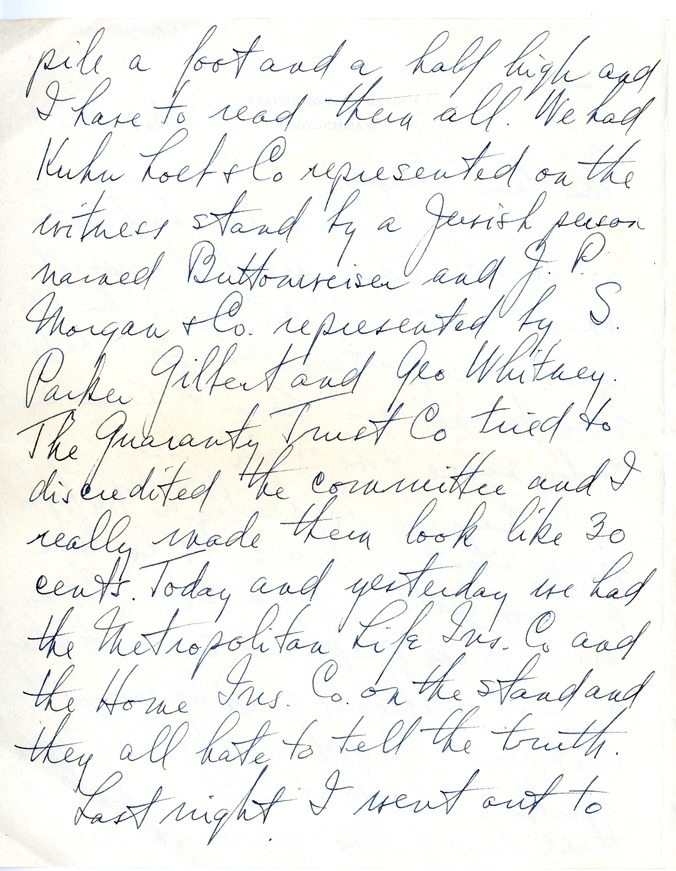 pile a foot and a half high and
I have to read them all. We had
Kuhn Loeb & Co represented on the
witness stand by a Jewish person
named Buttonweiser and J. P.
Morgan & Co. represented by S.
Parker Gilbert and Geo Whitney.
The Guaranty Trust Co tried to
discredited the committee and I
really made them look like 30
cents. Today and yesterday we had
the Metropolitan Life Ins. Co and
the Home Ins. Co. on the stand and
they all hate to tell the truth.
Last night I went out to